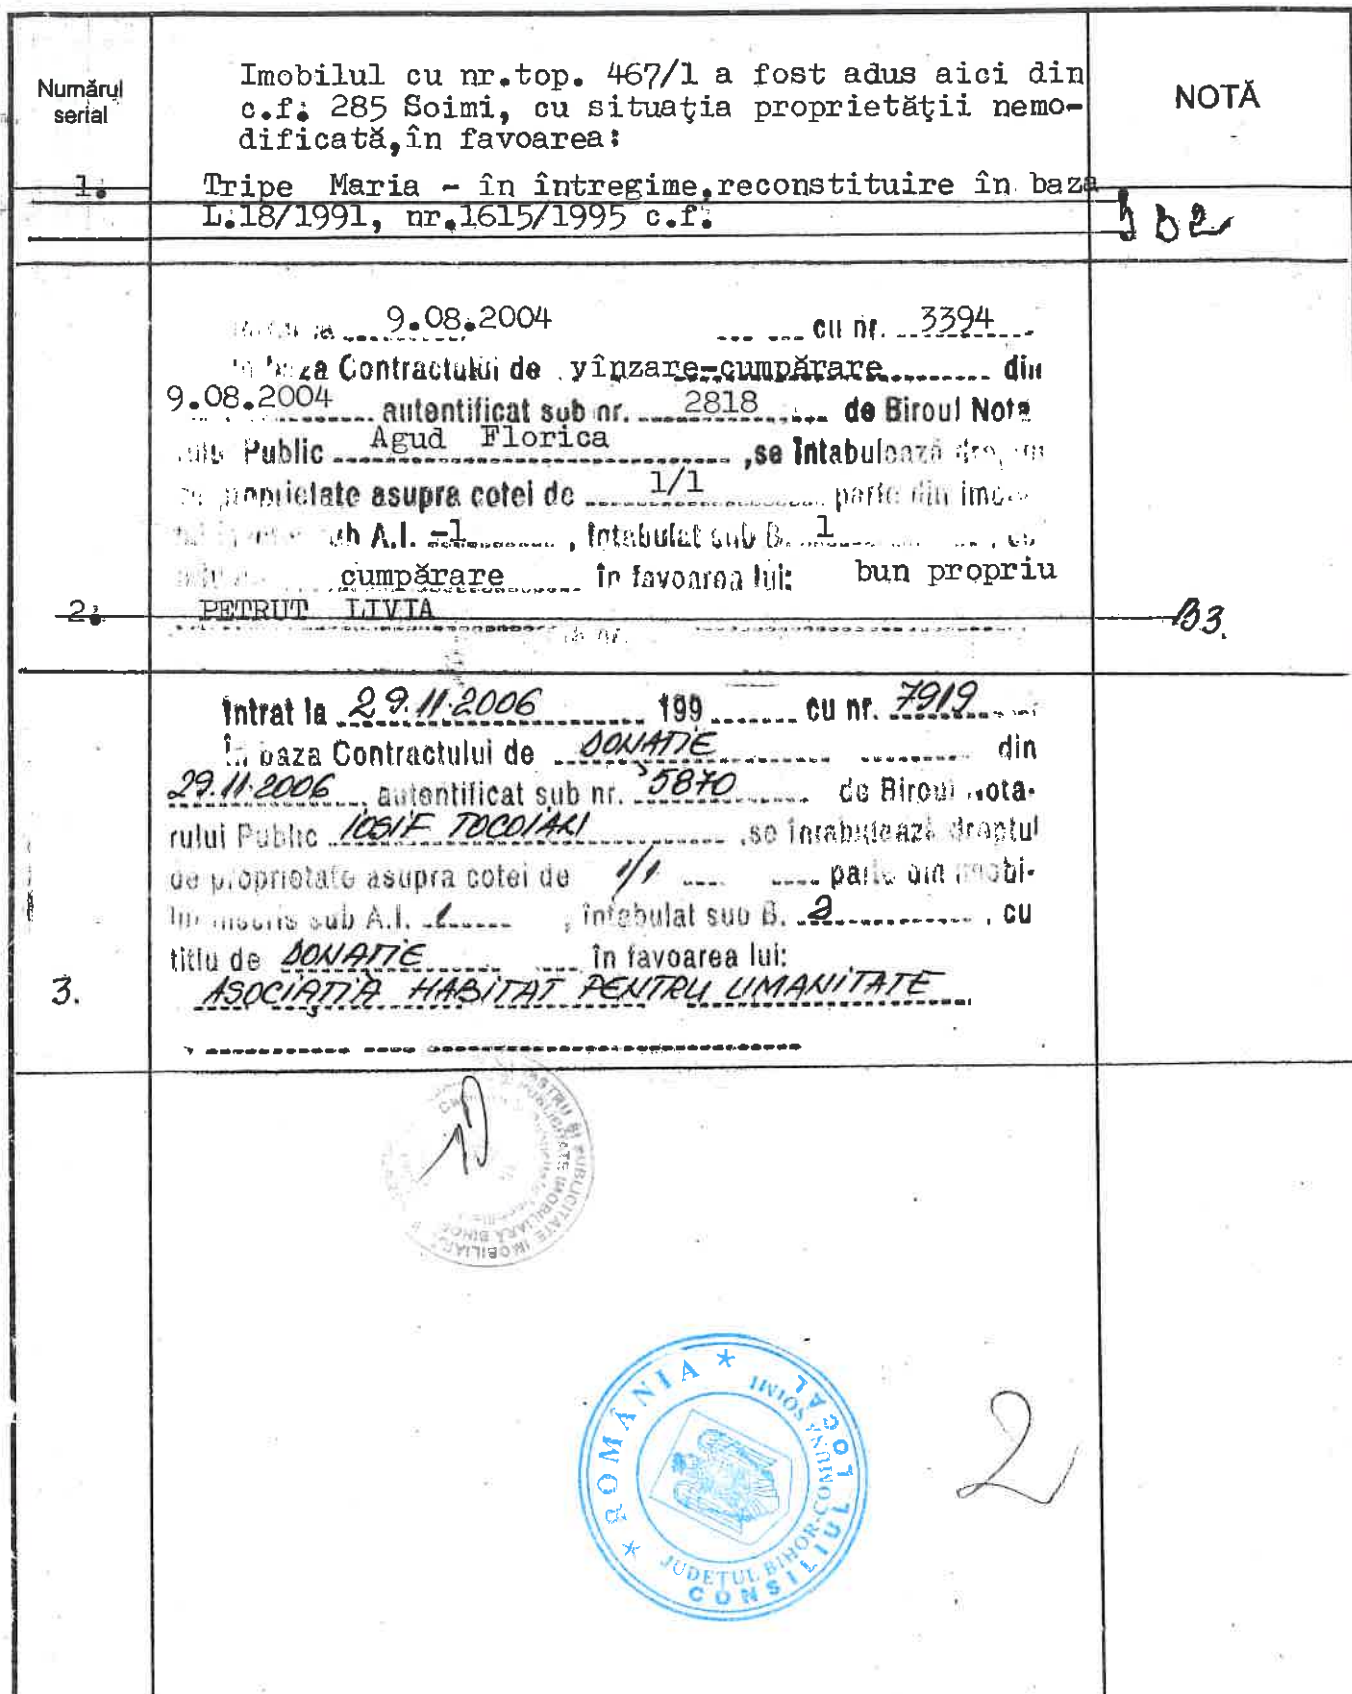 Numărul
serial
Imobilul cu nr.top. 467/1 a fost adus aici din
c.f. 285 Soimi, cu situaţia proprietăţii nemo-
dificată,în favoarea:
NOTĂ
1.
Tripe Maria - în întregime,reconstituire în baza
L.18/1991, nr.1615/1995 c.f.
B2
9.08.2004 cu nr. 3394
baza Contractului de vînzare-cumpărare din
9.08.2004 autentificat sub nr. 2818 de Biroul Nota
Public Agud Florica ,se întabulează
proprietate asupra cotei de 1/1 parte din
sub A.I. -1 , întabulat sub B. 1
cumpărare în favoarea lui: bun propriu
2. PETRUT LIVIA
B3.
Intrat la 29.11.2006 199 cu nr. 7919
În baza Contractului de DONAŢIE din
29.11.2006 autentificat sub nr. 5870 de Biroul Nota-
rului Public IOSIF ,se întabulează dreptul
de proprietate asupra cotei de 1/1 parte din imobi-
sub A.I. 1 , întabulat sub B. 2 , cu
titlu de DONAŢIE în favoarea lui:
3. ASOCIAŢIA HABITAT PENTRU UMANITATE
PUBLICITATE IMOBILIARĂ BIHOR
ROMÂNIA
JUDEŢUL BIHOR-COMUNA SOIMI
CONSILIUL LOCAL
2